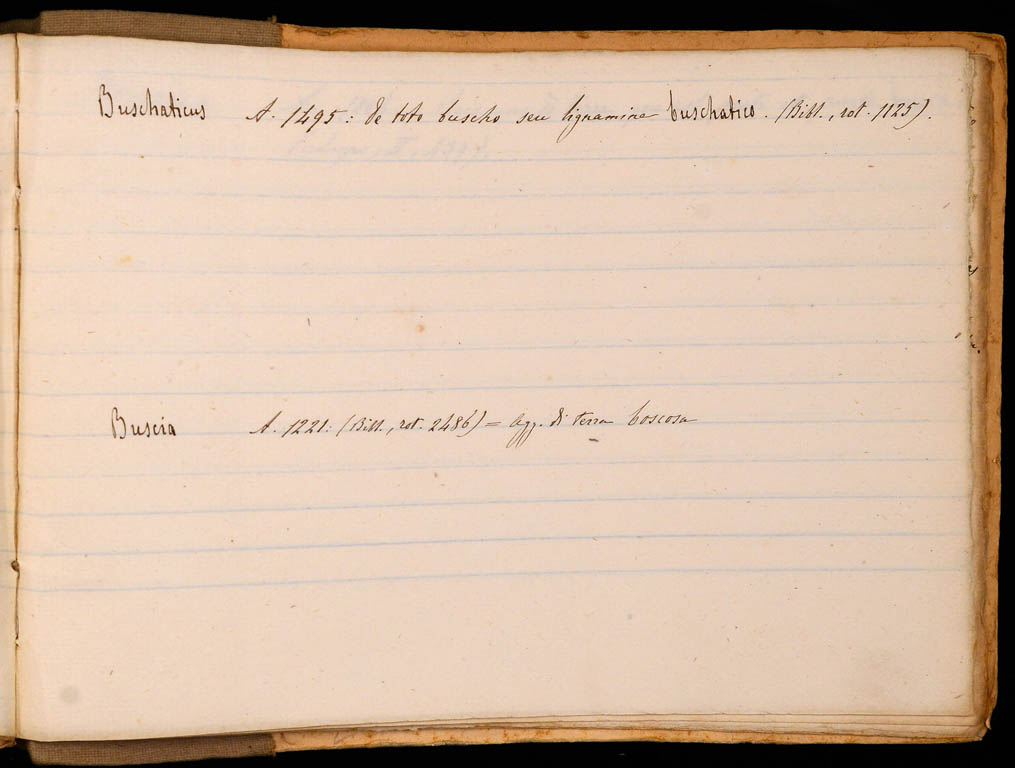 Buschaticus A. 1495: de toto buscho seu lignamine buschatico. (Bibl., rot. 1125).
Buscia A. 1221: (Bibl., rot. 2486) = agg. di terra boscosa